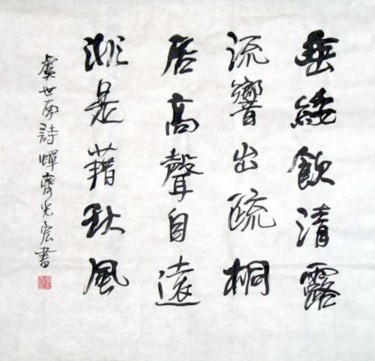 垂緌飲清露
流響出疏桐
居高聲自遠
非是藉秋風
虞世南詩蟬齊光宏書